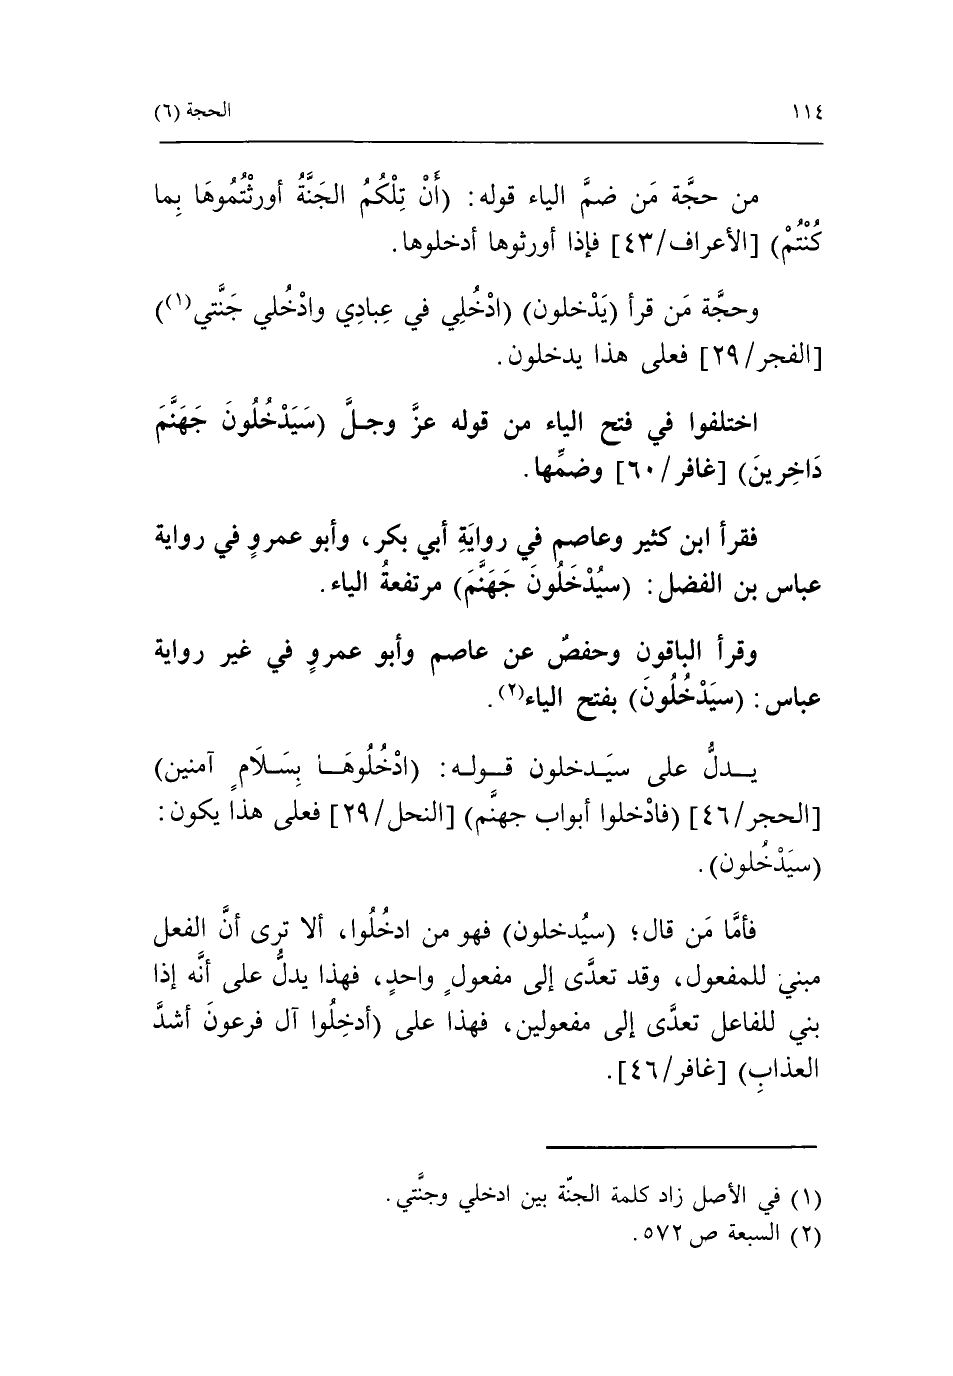 ١١٤ الحجة (٦)
من حجَّة مَن ضمَّ الياء قوله: (أَنْ تِلْكُمُ الجَنَّةُ أورثْتُمُوهَا بِما
كُنْتُمْ) [الأعراف/٤٣] فإذا أورثوها أدخلوها.
وحجَّة مَن قرأ (يَدْخلون) (ادْخُلِي في عِبادِي وادْخُلي جَنَّتي(١))
[الفجر/٢٩] فعلى هذا يدخلون.
اختلفوا في فتح الياء من قوله عزَّ وجلَّ (سَيَدْخُلُونَ جَهَنَّمَ
دَاخِرينَ) [غافر/٦٠] وضمِّها.
فقرأ ابن كثير وعاصم في روايَةِ أبي بكر، وأبو عمروٍ في رواية
عباس بن الفضل: (سيُدْخَلُونَ جَهَنَّمَ) مرتفعةُ الياء.
وقرأ الباقون وحفصٌ عن عاصم وأبو عمروٍ في غير رواية
عباس: (سيَدْخُلُونَ) بفتح الياء(٢).
يدلُّ على سيَدخلون قوله: (ادْخُلُوهَا بِسَلَامٍ آمنين)
[الحجر/٤٦] (فادْخلوا أبواب جهنَّم) [النحل/٢٩] فعلى هذا يكون:
(سيَدْخُلون).
فأمَّا مَن قال؛ (سيُدخلون) فهو من ادخُلُوا، ألا ترى أنَّ الفعل
مبنيٌ للمفعول، وقد تعدَّى إلى مفعولٍ واحدٍ، فهذا يدلُّ على أنَّه إذا
بني للفاعل تعدَّى إلى مفعولين، فهذا على (أدخِلُوا آل فرعونَ أشدَّ
العذابِ) [غافر/٤٦].
(١) في الأصل زاد كلمة الجنّة بين ادخلي وجنَّتي.
(٢) السبعة ص ٥٧٢.